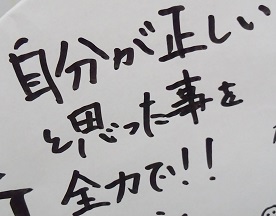 自分が正しい
と思った事を
全力で!!